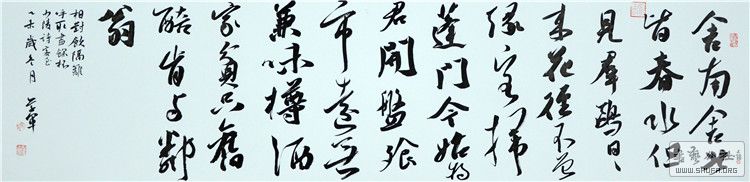 舍南舍北
皆春水但
見羣鷗日々
来花徑不曾
緣客掃
蓬門今始為
君開盤飧
市遠無
兼味樽酒
家貧只舊
醅肯与鄰
翁
相對飲隔籬
呼取盡餘杯
少陵詩客至
乙未歲冬月
WWW.SHUFA.ORG